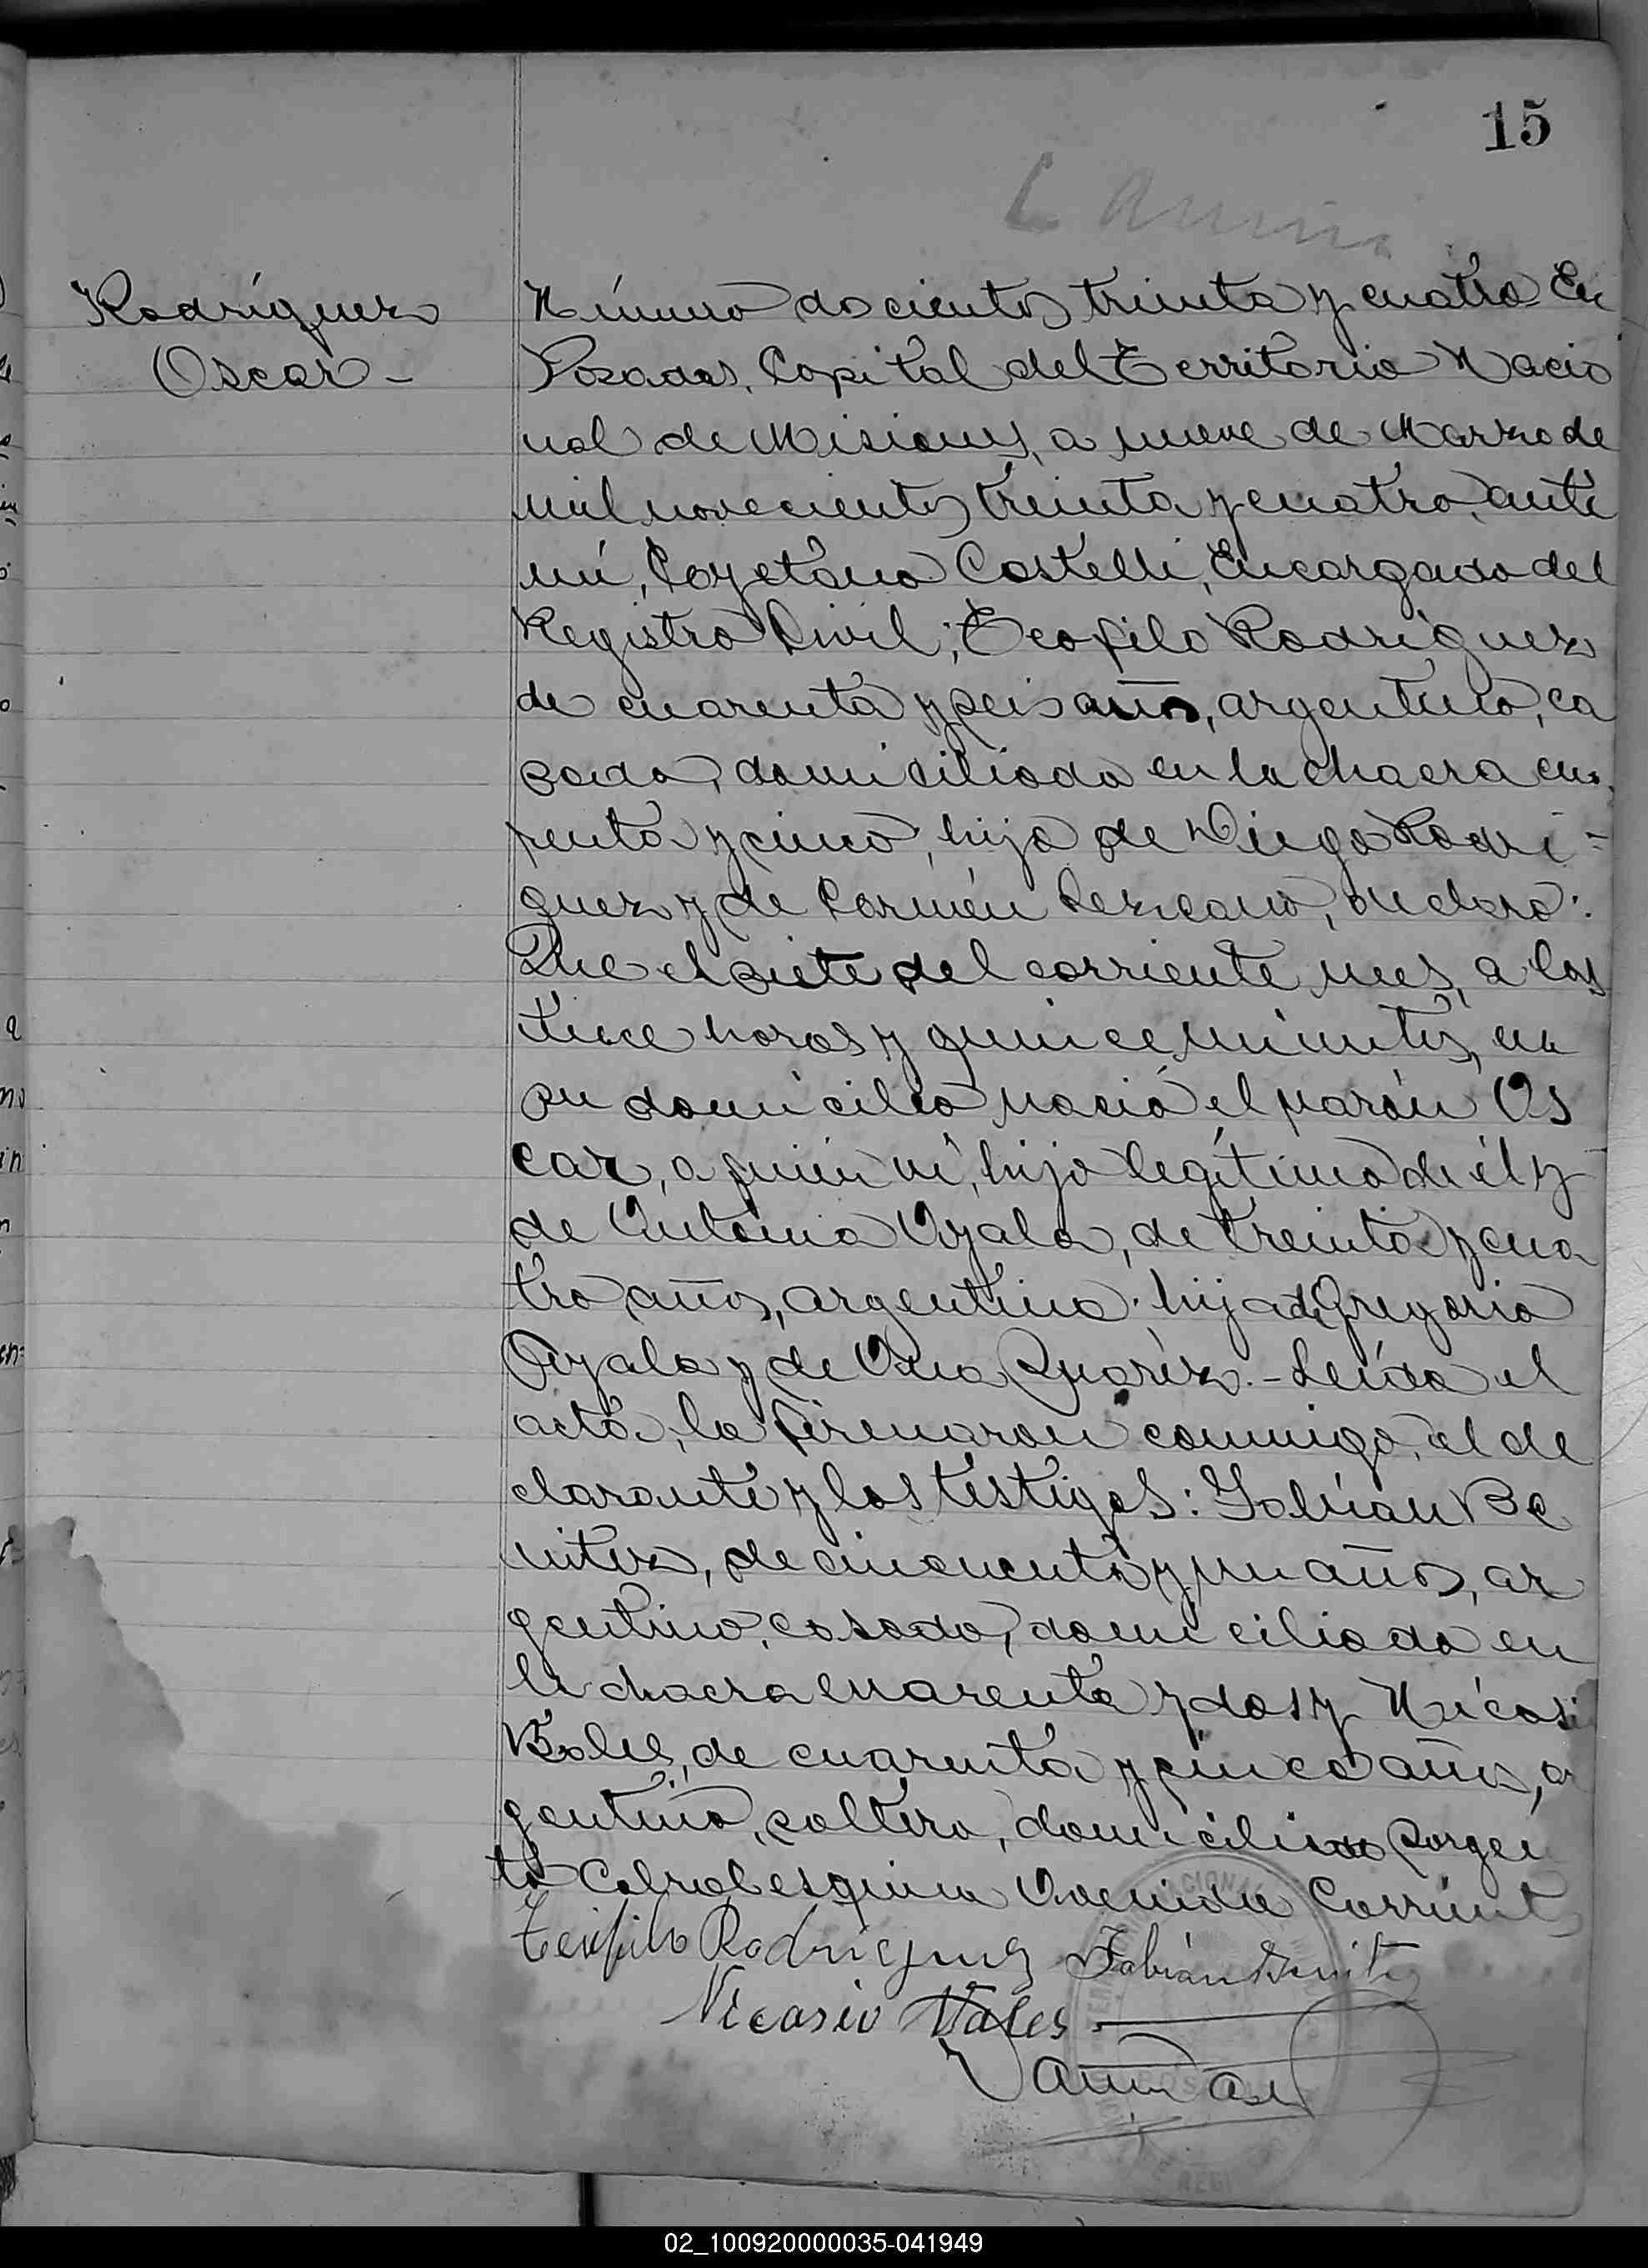 15
Rodríguez
Oscar -
Número doscientos treinta y cuatro En
Posadas, Capital del Territorio Nacio
nal de Misiones, a nueve de Marzo de
mil novecientos treinta y cuatro, ante
mí, Cayetano Castelli, Encargado del
Registro Civil; Teofilo Rodríguez
de cuarenta y seis años, argentino, ca
sado, domiciliado en la chacra cua
renta y cinco, hijo de Diego Rodrí=
guez y de Carmen Lezcano, declaro:
Que el siete del corriente mes, a las
trece horas y quince minutos, en
su domicilio nació el varón Os
car, a quien ví, hijo legítimo de él y
de Antonia Ayala, de treinta y cua
tro años, argentina, hija de Gregorio
Ayala y de Ana Suaréz. - Leída el
acta, la firmaron conmigo, el de
clarante y los testigos: Fabián Be
nitez, de cincuenta y un años, ar
gentino, casado, domiciliado en
la chacra cuarenta y dos y Nicasi
Bales, de cuarenta y cinco años, ar
gentino, soltero, domiciliado Sargen
to Cabral esquina Avenida Corrient
Teofilo Rodriguez Fabián Benitez
Nicasio Vales
02_100920000035-041949